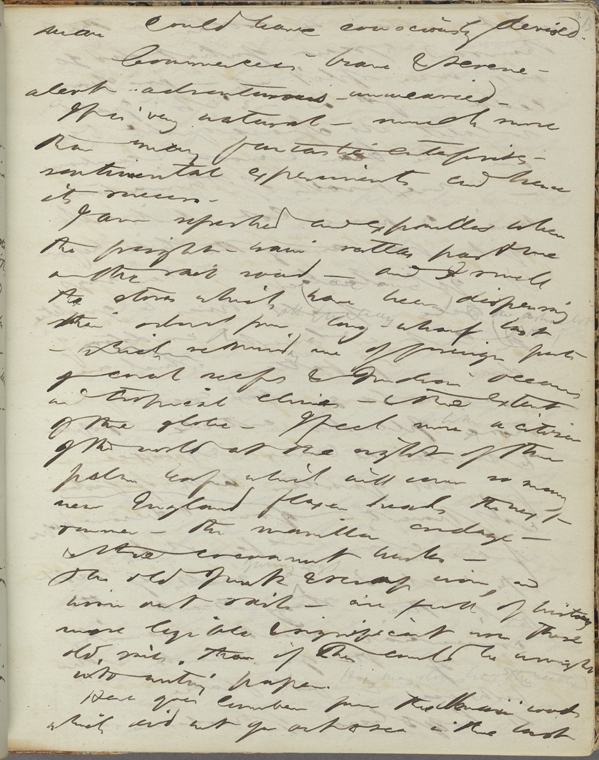 man could have consciously devised.
Commerce is brave & serene –
alert – adventurous – unwearied –
It is very natural – much more
than many fantastic enterprises –
sentimental experiments and hence
its success.
I am refreshed and expanded when
the freight train rattles past me
on the rail road – and I smell
the stores which have been dispensing
their odors from long wharf last
– which reminds me of foreign parts
of coral reefs & Indian oceans
and tropical climes – & the extent
of the globe – I feel more a citizen
of the world at the sight of the
palm leaf which will cover so many
new England flaxen heads the next
summer – the manilla cordage –
& the cocoanut husks –
The old Junk & scrap iron, and
worn out sails – are full of history
more legible & significant now these
old sails than if they could be wrought
into writing paper.
Here goes lumber from the Maine woods
which did not go out to sea in the last